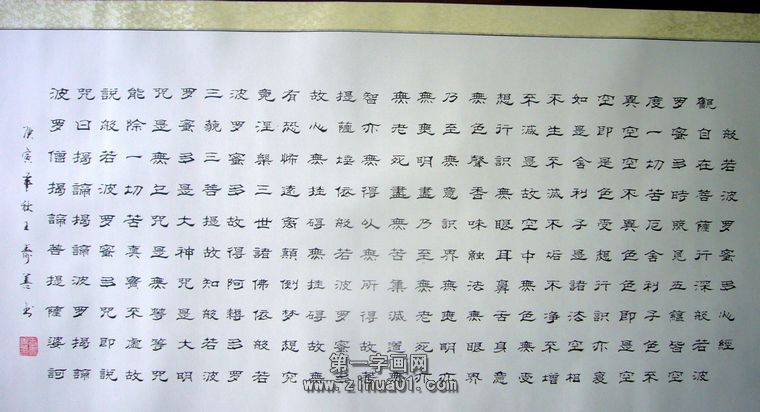 般若波罗蜜多心經
觀自在菩薩行深般若波
罗蜜多時照見五蘊皆空
度一切苦厄舍利子色不
異空空不異色色即是空
空即是色受想行識亦復
如是舍利子是諸法空相
不生不滅不垢不淨不增
不減是故空中無色無受
想行識無眼耳鼻舌身意
無色聲香味触法無眼界
乃至無意識界無無明亦
無無明盡乃至無老死亦
無老死盡無苦集滅道無
智亦無得以無所得故菩
提薩埵依般若波罗蜜多
故心無挂碍無挂碍故無
有恐怖遠离顛倒梦想究
竟涅槃三世諸佛依般若
波罗蜜多故得阿耨多罗
三藐三菩提故知般若波
罗蜜多是大神咒是大明
咒是無上咒是無等等咒
能除一切苦真實不虛故
說般若波罗蜜多咒即說
咒曰揭諦揭諦波罗揭諦
波罗僧揭諦菩提薩婆訶
庚寅年秋王寿善书
第一字画网
www.zihua01.com